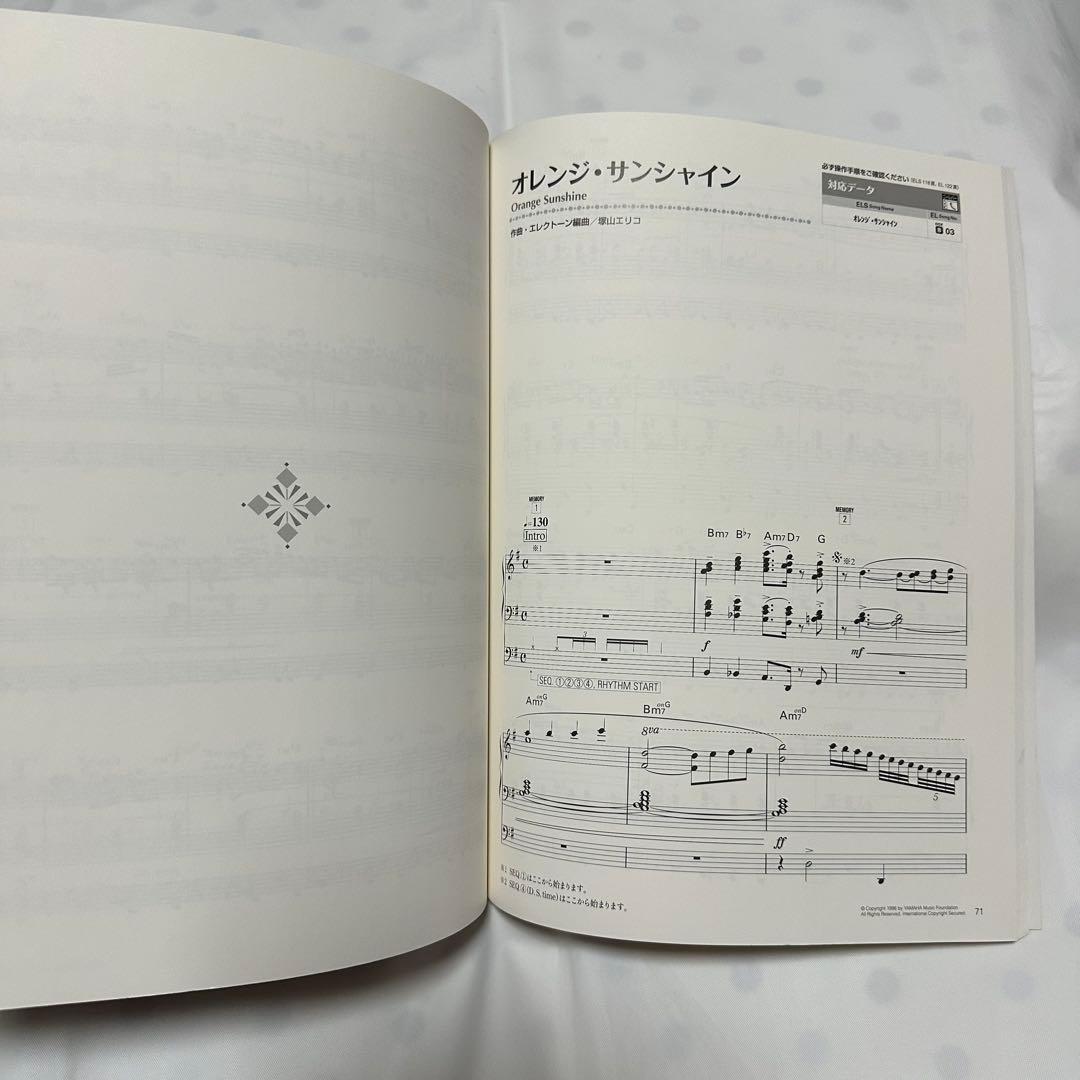 オレンジ・サンシャイン
Orange Sunshine
作曲・エレクトーン編曲／塚山エリコ
必ず操作手順をご確認ください(ELS 118頁、EL 122頁)
対応データ
ELS Song Name
EL Song No.
オレンジ・サンシャイン
03
MEMORY
1
♩=130
Intro
※1
Bm7 B♭7 Am7 D7 G
MEMORY
2
※2
3
f
mf
SEQ. ①②③④, RHYTHM START
Am7 onG
Bm7 onG
Am7 onD
8va
5
ff
※1 SEQ.①はここから始まります。
※2 SEQ.④(D.S.time)はここから始まります。
© Copyright 1996 by YAMAHA Music Foundation
All Rights Reserved. International Copyright Secured.
71